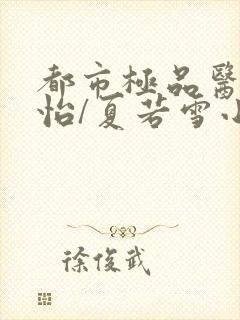 都市極品醫
怡/夏若雪小
徐俊武